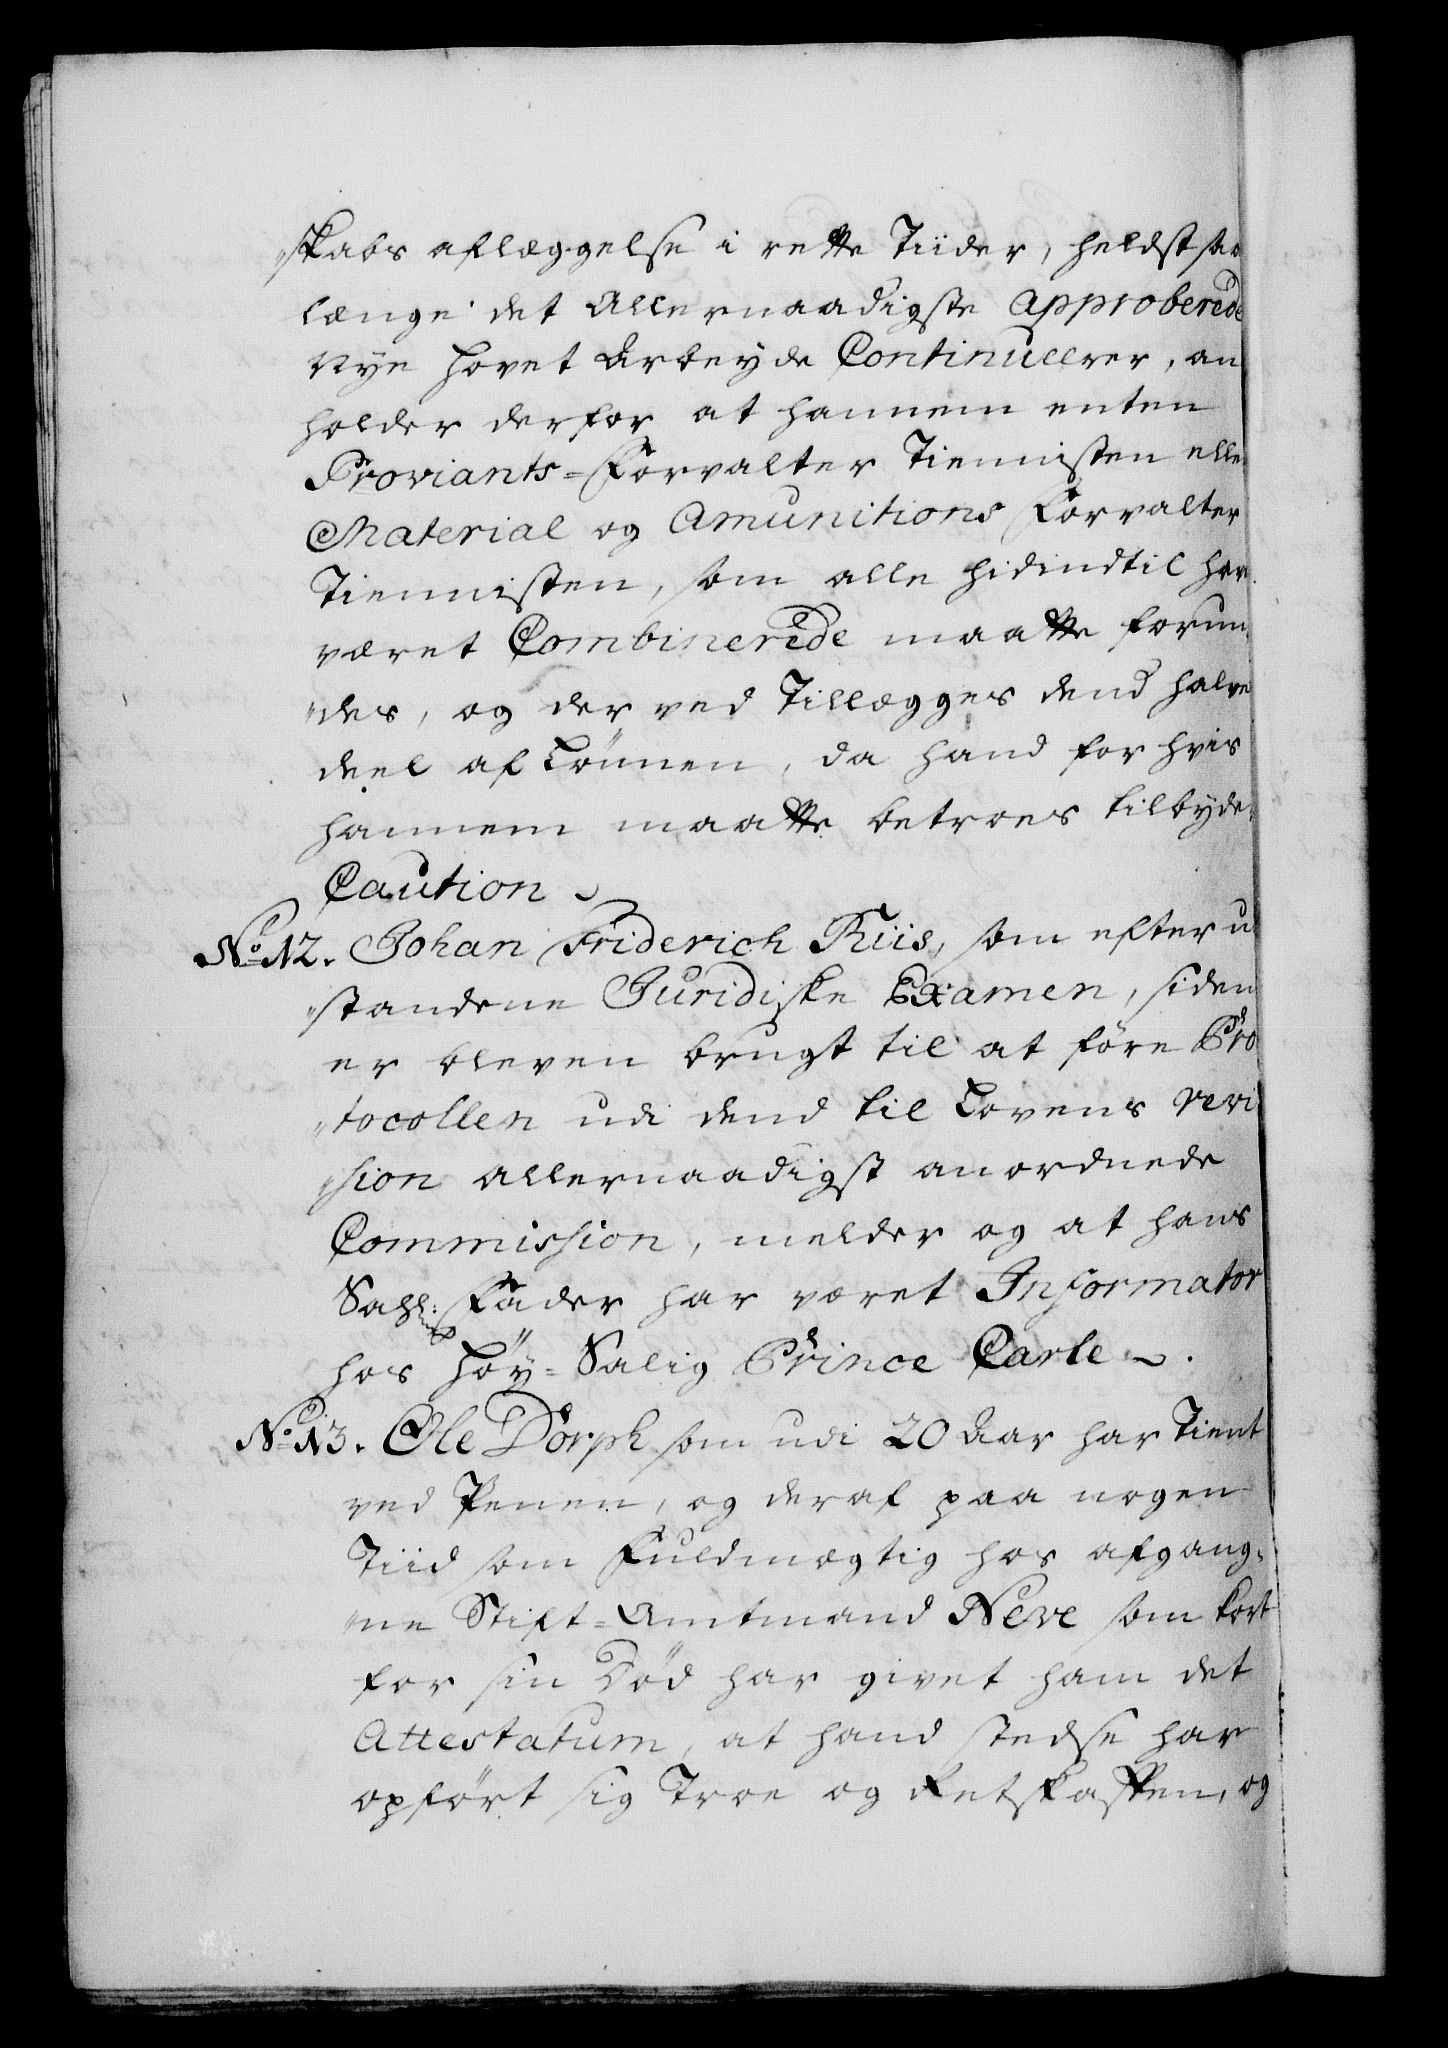 "skabs aflæggelse i rette Tiider, heldst saa
længe det Allernaadigste Approberede
Nye Hovet Arbeyde Continuerer, an
holder derfor at hannem enten
Proviants=Forvalter Tiennisten elle
Material og Amunitions Forvalter
Tiennisten, som alle hidindtil har
været Combinerede maatte forun,
"des, og der ved Tillægges dend halve
deel af Lønnen, da hand for hvis
hannem maatte betroes tilbyder
Caution
No. 12. Johan Friderich Riis, som efter u
"standene Juridiske Examen, siden
er bleven brugt til at føre Pro
"tocollen udi dend til Lovens revi
"sion allernaadigst anordnede
Commission, melder og at hans
Sahl: Fader har været Informator
hos Høy=Salig Prince Carle.
No. 13. Ole Dorph som udi 20 Aar har Tient
ved Penen, og deraf paa nogen
Tiid som Fuldmægtig hos afgang,
"ne Stift=Amtmand Neve som kort
for sin Død har givet ham det
Attestatum, at hand stedse har
opført sig Troe og Retskaffen, og